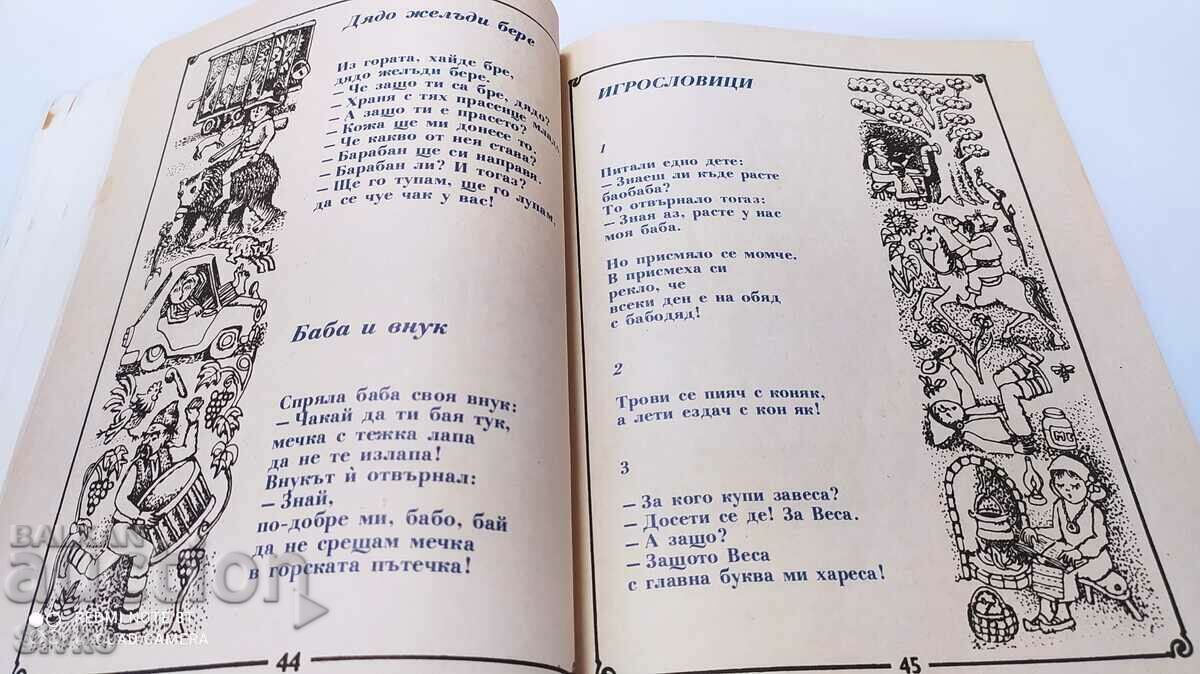 Дядо желъди бере
Из гората, хайде бре,
дядо желъди бере.
– Че защо ти са бре, дядо?
– Храня с тях прасенце
– А защо ти е прасето?
– Кожа ще ми донесе то.
– Че какво от нея става?
– Барабан ще си направи.
– Барабан ли? И тогаз?
– Ще го тупам, ще го лупам,
да се чуе чак у вас!
Баба и внук
Спряла баба своя внук:
– Чакай да ти бая тук,
мечка с тежка лапа
да не те излапа!
Внукът ѝ отвърнал:
– Знай,
по-добре ми, бабо, бай
да не срещам мечка
в горската пътечка!
44
ИГРОСЛОВИЦИ
1
Питали едно дете:
– Знаеш ли къде расте
баобаба?
То отвърнало тогаз:
– Зная аз, расте у нас
моя баба.
Но присмяло се момче.
В присмеха си
рекло, че
всеки ден е на обяд
с бабодяд!
2
Трови се пияч с коняк,
а лети ездач с кон як!
3
– За кого купи завеса?
– Досети се де! За Веса.
– А защо?
– Защото Веса
с главна буква ми хареса!
45
BALKAN
auction
REDMI NOTE 8T
AI QUAD CAMERA